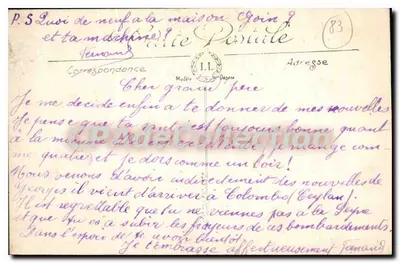 P.S Quoi de neuf a la maison
et ta machine ?
Fernand
Carte Postale
83
Correspondance
LL
Adresse
Cher grand père
Je me decide enfin a te donner de mes nouvelles
Je pense que ta santé est toujours bonne quant
à la mienne je mange com-
me quatre et je dors comme un loir !
Nous venons d'avoir indirectement des nouvelles de
Georges il vient d'arriver a Colombo (Ceylan).
Il est regrettable que tu ne viennes pas a la Seyne
et que tu es a subir les frayeurs de ces bombardements.
Dans l'espoir de te revoir bientôt
Je t'embrasse affectueusement Fernand